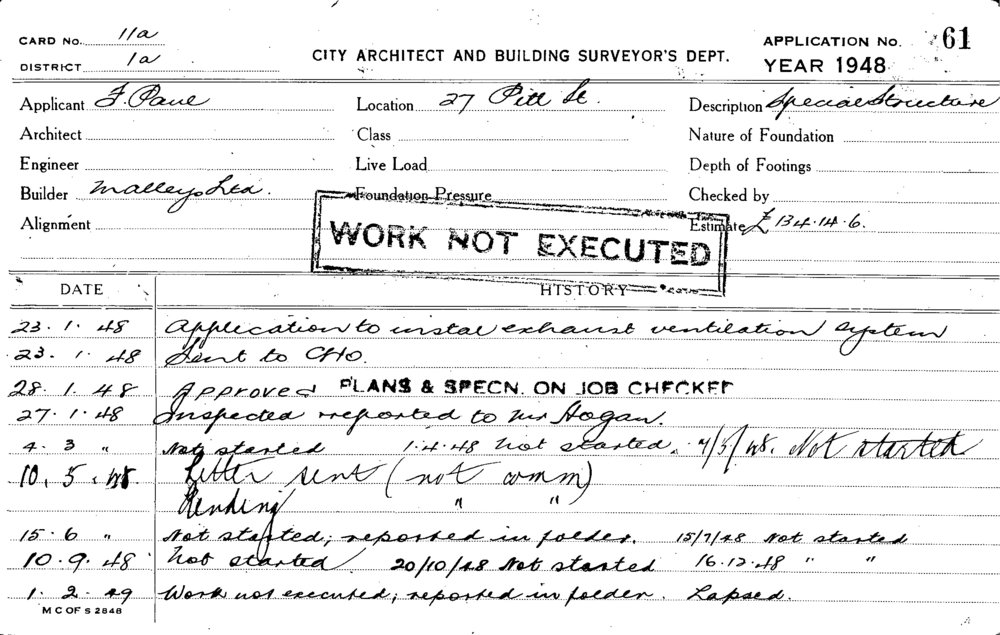 CARD No. 11a
DISTRICT 1a
CITY ARCHITECT AND BUILDING SURVEYOR'S DEPT.
APPLICATION No. 61
YEAR 1948
Applicant F. Pane Location 27 Pitt St. Description Special Structure
Architect Class Nature of Foundation
Engineer Live Load Depth of Footings
Builder Malleys Ltd. Foundation Pressure Checked by
Alignment Estimate £134.14.6.
WORK NOT EXECUTED
DATE HISTORY
23.1.48 Application to instal exhaust ventilation system
23.1.48 Sent to CHO.
28.1.48 Approved PLANS & SPECN. ON JOB CHECKED
27.1.48 Inspected & reported to Mr Hogan.
4.3 " Not started 1.4.48 Not started. 4/5/48. Not started
10.5.48 Letter sent (not comm)
Pending " "
15.6 " Not started; reported in folder. 15/7/48 Not started
10.9.48 Not started 20/10/48 Not started 16.12.48 " "
1.2.49 Work not executed; reported in folder. Lapsed.
M C OF S 2848